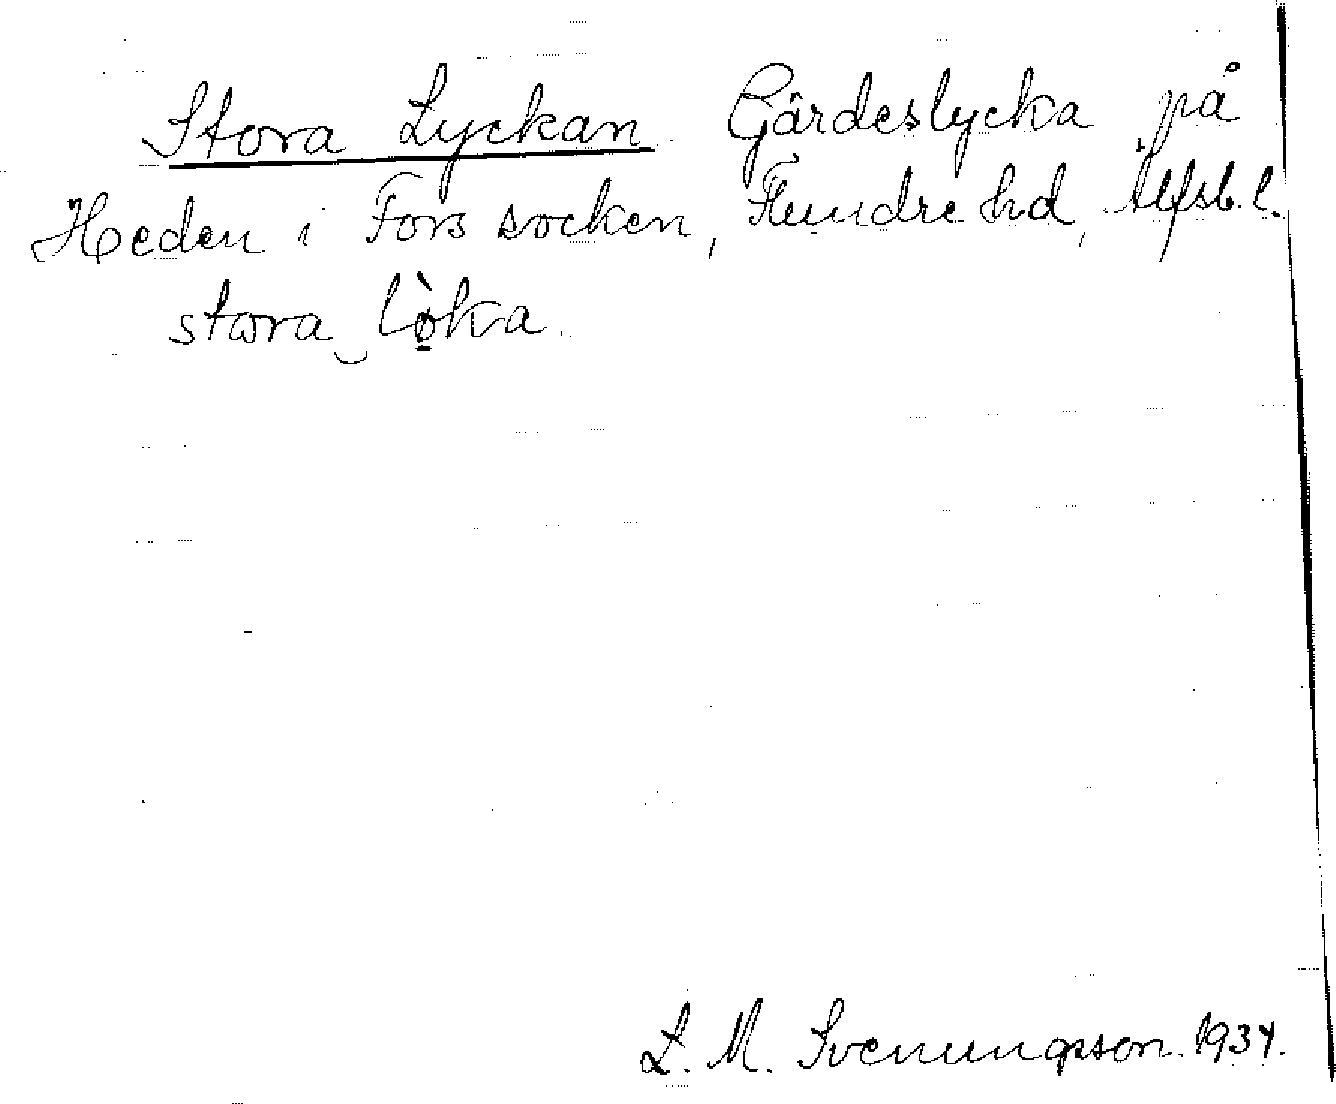 Stora Lyckan. Gärdeslycka på
Heden i Fors socken, Flundre hd, Älfsb. l.
stora‿lò̱ka.
L. M. Svenungsson. 1934.